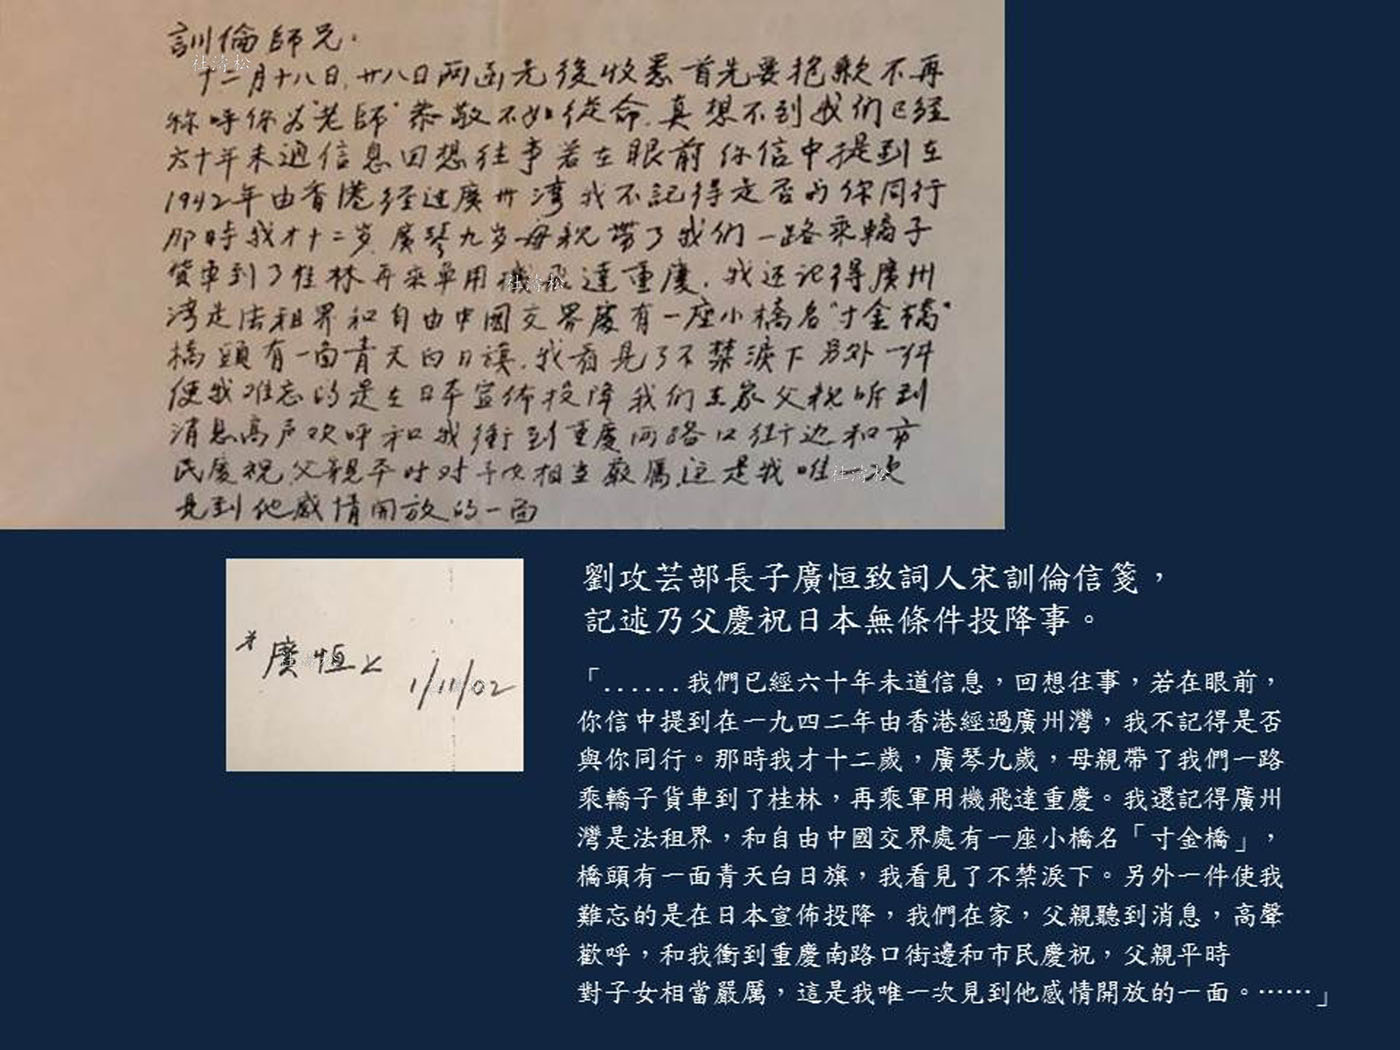 訓倫師兄．
十二月十八日，廿八日两函先後收悉首先要抱歉不再
称呼你为"老師"恭敬不如從命．真想不到我们已经
六十年未通信息回想往事若在眼前 你信中提到在
1942年由香港经过廣州湾我不記得是否为你同行
那時我才十二岁，廣琴九岁母親帶了我们一路乘轎子
貨車到了桂林再乘军用機飛達重慶．我还记得廣州
湾是法租界和自由中國交界處有一座小橋名"寸金橋"
橋頭有一面青天白日旗．我看見了不禁淚下 另外一件
使我难忘的是在日本宣佈投降我们在家父親听到
消息高声欢呼和我衝到重慶两路口街边和市
民慶祝．父親平时对子女相当嚴厲，这是我唯一次
見到他感情開放的一面
杜濤松
杜濤松
杜濤松
弟廣恒上
1/11/02
劉攻芸部長子廣恒致詞人宋訓倫信箋，
記述乃父慶祝日本無條件投降事。
「......我們已經六十年未道信息，回想往事，若在眼前，
你信中提到在一九四二年由香港經過廣州灣，我不記得是否
與你同行。那時我才十二歲，廣琴九歲，母親帶了我們一路
乘轎子貨車到了桂林，再乘軍用機飛達重慶。我還記得廣州
灣是法租界，和自由中國交界處有一座小橋名「寸金橋」，
橋頭有一面青天白日旗，我看見了不禁淚下。另外一件使我
難忘的是在日本宣佈投降，我們在家，父親聽到消息，高聲
歡呼，和我衝到重慶南路口街邊和市民慶祝，父親平時
對子女相當嚴厲，這是我唯一次見到他感情開放的一面。……」